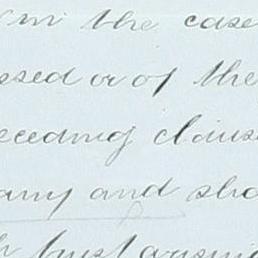 in the case
ssed or of the
ceeding claus
any and sha
h first arisin